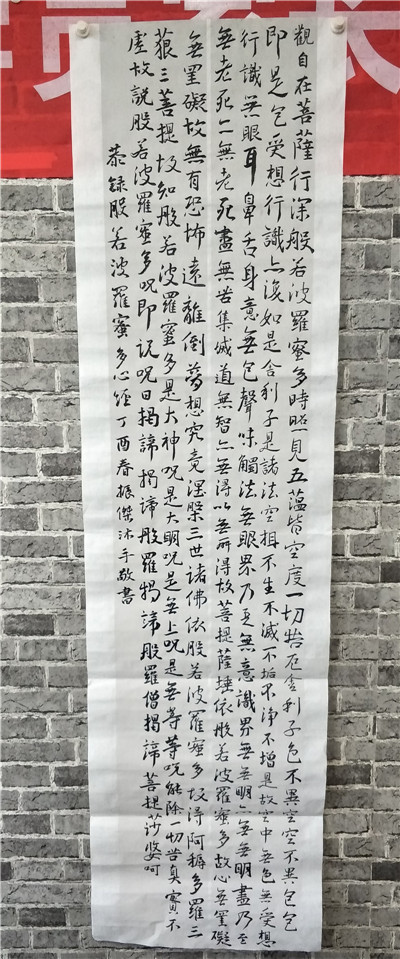 观自在菩薩行深般若波羅蜜多時照見五蘊皆空度一切苦厄舍利子色不異空空不異色色
即是色受想行識亦復如是舍利子是諸法空相不生不滅不垢不淨不增是故空中無色無受想
行識無眼耳鼻舌身意無色聲味觸法無眼界乃至無意識界無無明亦無無明盡乃至
無老死亦無老死盡無苦集滅道無智亦無得以無所得故菩提薩埵依般若波羅蜜多故心無罣礙
無罣礙故無有恐怖遠離倒夢想究竟涅槃三世諸佛依般若波羅蜜多故得阿耨多羅三
藐三菩提故知般若波羅蜜多是大神咒是大明咒是無上咒是無等等咒能除一切苦真實不
虛故說般若波羅蜜多咒即説咒曰揭諦揭諦般羅揭諦般羅僧揭諦菩提莎婆呵
恭錄般若波羅蜜多心經丁酉春振傑沐手敬書